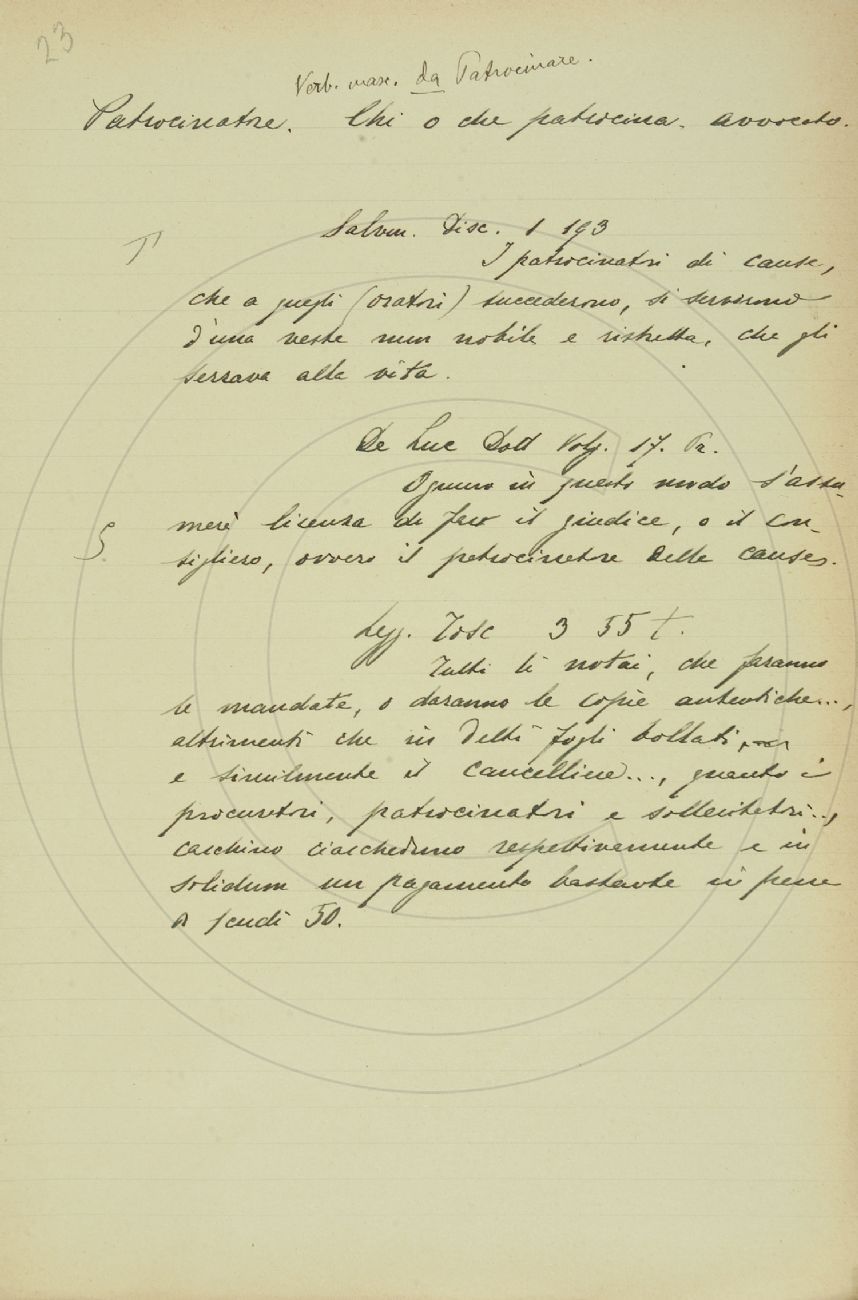 23
Verb. masc. da Patrocinare.
Patrocinatore. Chi o che patrocina. Avvocato.
Salvin. Disc. 1 193
I patrocinatori di cause,
che a quegli (oratori) succederono, si servirono
d'una veste men nobile e ristretta, che gli
serrava alla vita.
De Luc Dott Volg. 17. Pr.
Ognuno in questo modo s'assu-
merè licenza di fare il giudice, o il con-
sigliero, ovvero il patrocinatore delle cause.
5
Legg. Tosc 3 55 t.
Tutti li notai, che faranno
le mandate, o daranno le copie autentiche...,
altrimenti che in detti fogli bollati,
e similmente il cancelliere..., quanto i
procuratori, patrocinatori e sollecitatori...,
caschino ciascheduno respettivamente e in
solidum un pagamento bastante in pene
a scudi 50.